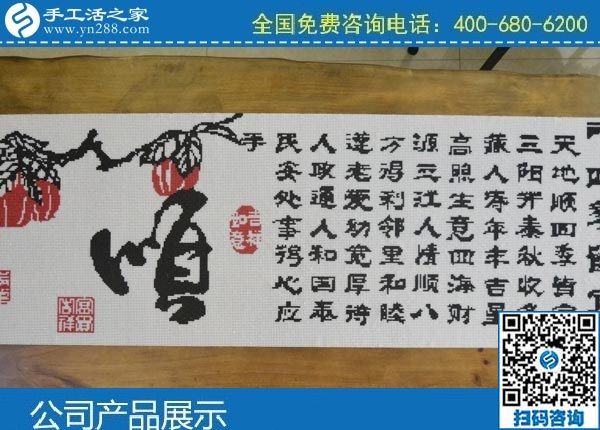 手工活之家
www.yn288.com
全国免费咨询电话：400-680-6200
四季皆宜
天地顺四季皆宜
三阳开泰秋收冬
藏人寿年丰吉星
高照生意四海财
源三江人情顺八
方得利邻里和睦
尊老爱幼宽厚待
人政通人和国泰
民安处事得心应
手
吉祥如意
顺
富贵吉祥
公司产品展示
扫码咨询